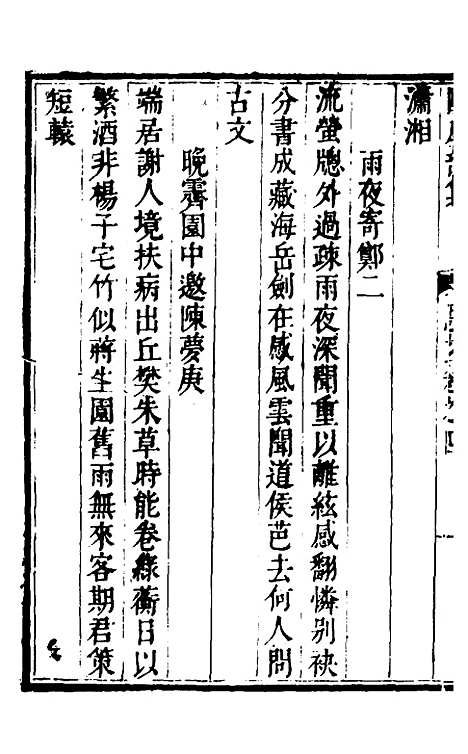 瀟湘
雨夜寄鄭二
流螢牕外過疎雨夜深聞重以離絃感翻憐別袂
分書成藏海岳劍在感風雲聞道侯芭去何人問
古文
晚霽園中邀陳夢庚
端居謝人境扶病出丘樊朱草時能卷綠蘅日以
繁酒非楊子宅竹似蔣生園舊雨無來客期君策
短轅